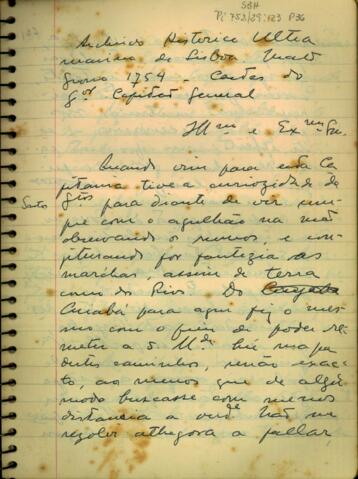 SBH
Pi 752/29:123 P36
Archivo Historico Ultra
marino de Lisboa. Mato
Grosso 1754 - Cartas do
Gor Capitão General
Illmo e Exmo Sr.
Quando vim para esta Ca
pitania tive a curiozidade de
Stos para diante de ver sem-
Santos
pre com o agulhão na mão
observando os rumos, e com-
puttando por fantezia as
marchas, assim de terra
como dos Rios. Do Cuyaba
Cuiabá para aqui fiz o mes
mo com o fim de poder re
meter a S. Mde hú mapa
destes caminhos, senão exac-
to, ao menos que de algũ
modo buscasse com menos
distancia a verde Não me
rezolvo athegora a fallar